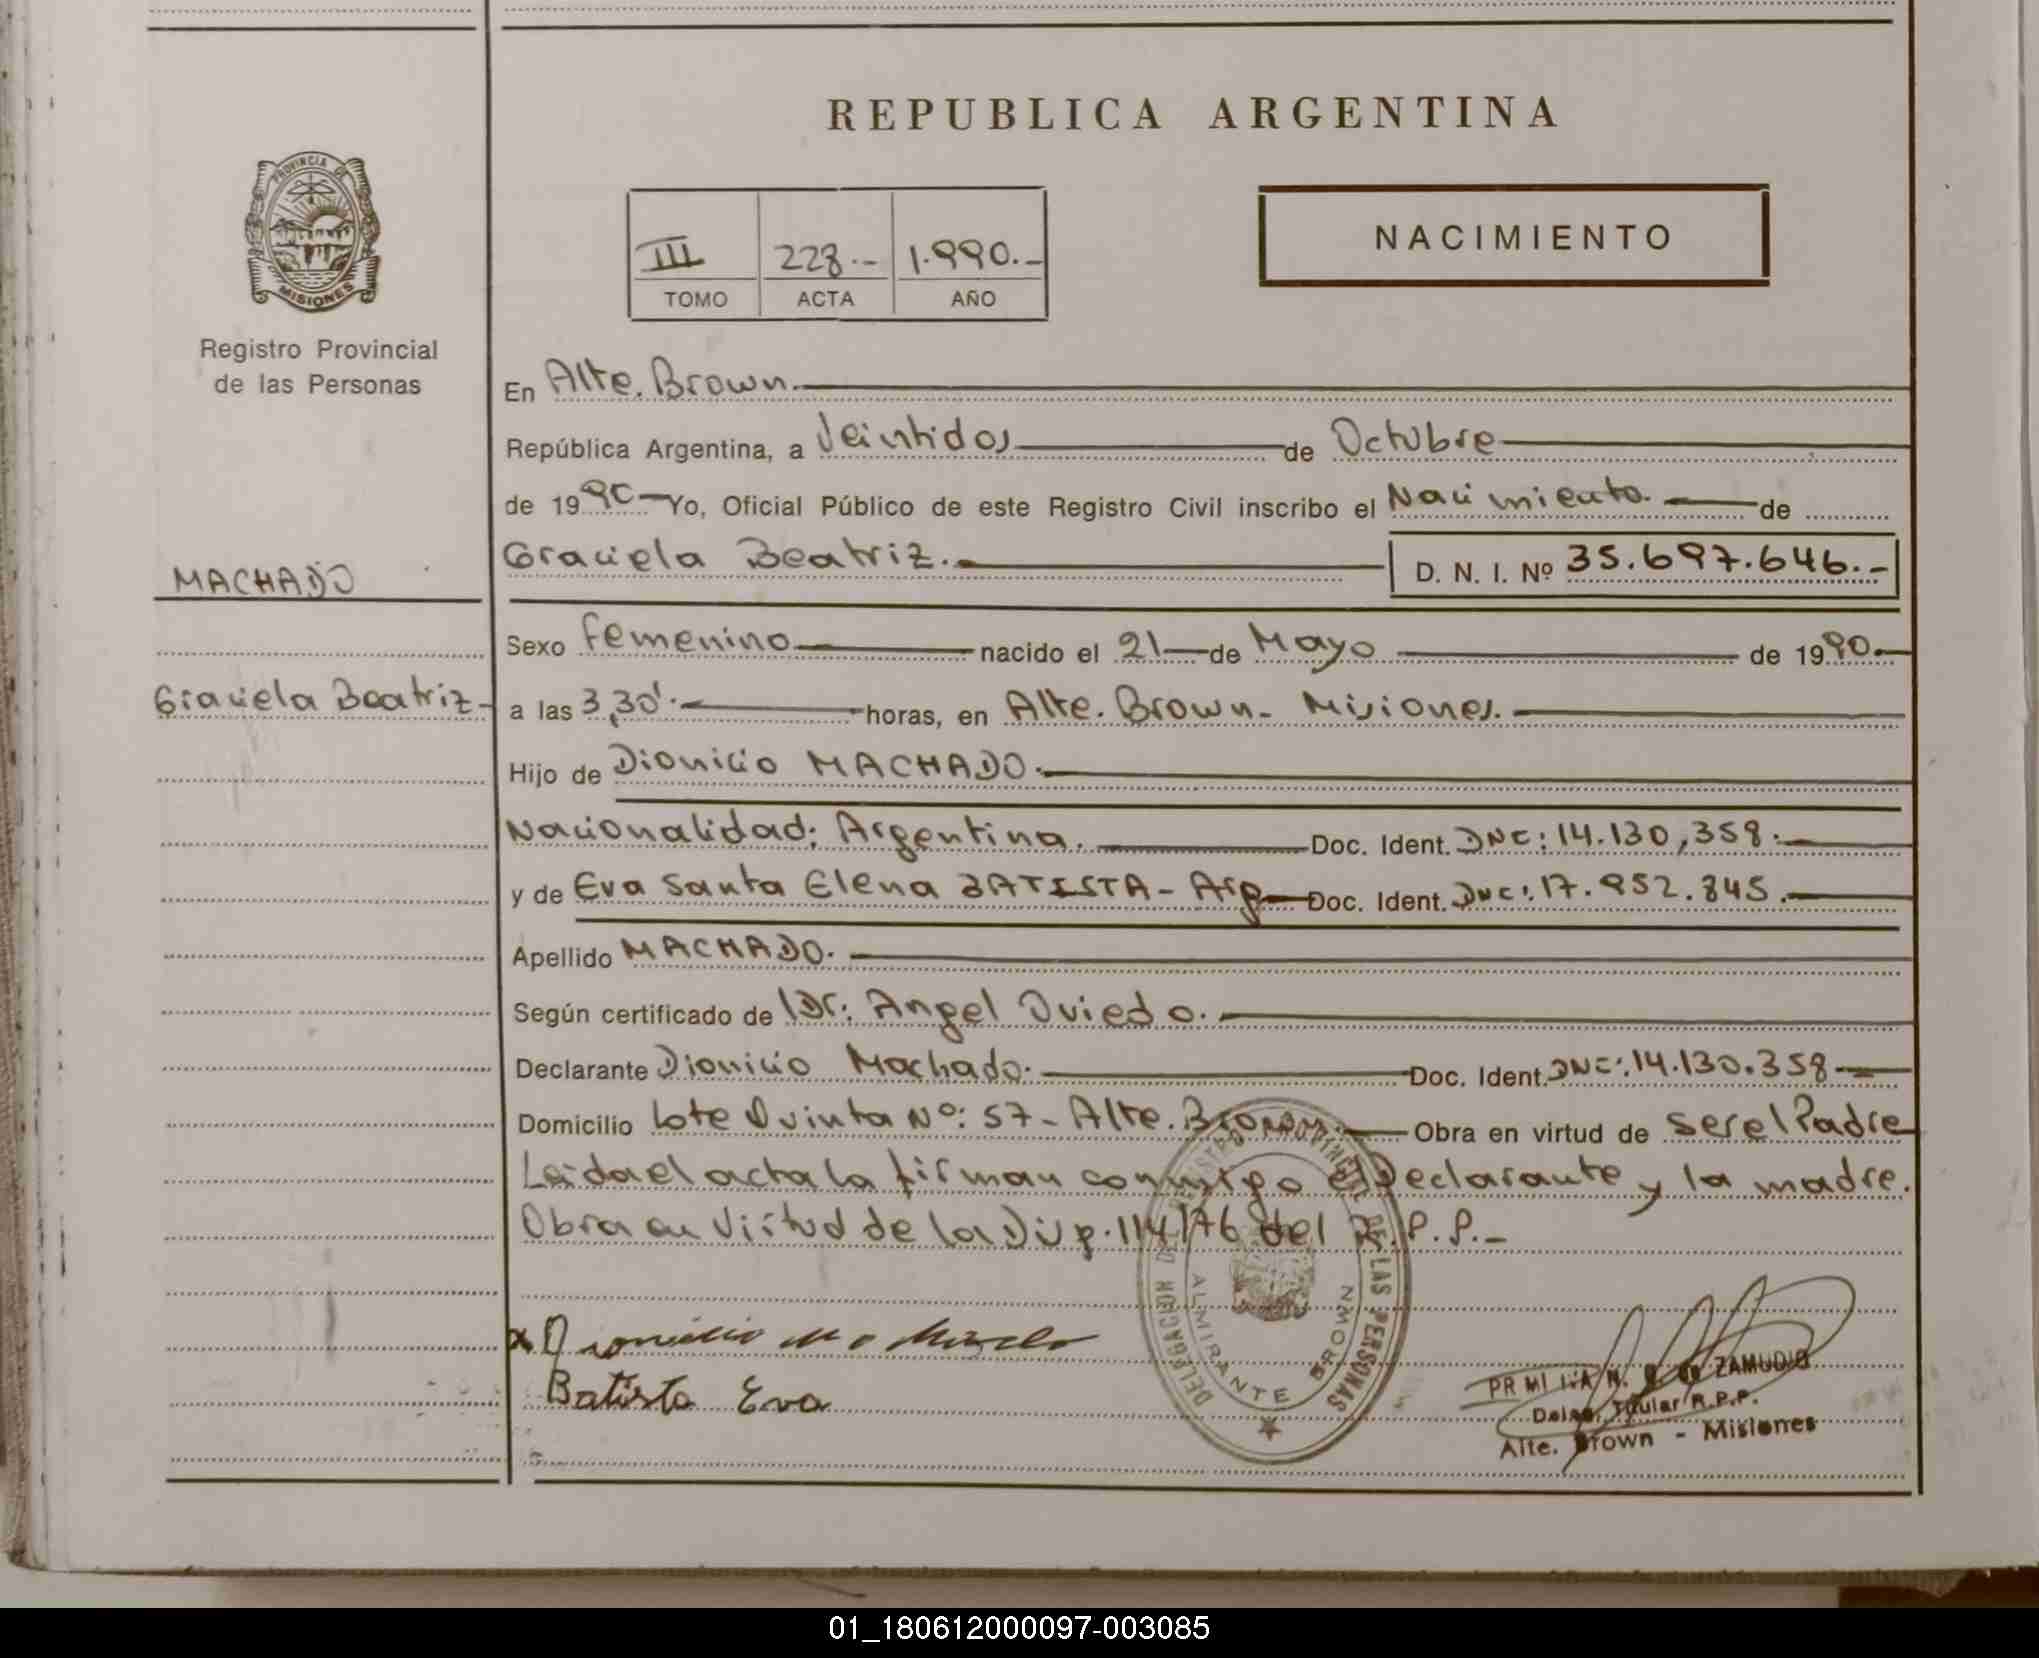 REPUBLICA ARGENTINA
PROVINCIA DE MISIONES
III 228.- 1.990.-
TOMO ACTA AÑO
NACIMIENTO
Registro Provincial
de las Personas
En Alte. Brown.
República Argentina, a Veintidos de Octubre
de 1990 Yo, Oficial Público de este Registro Civil inscribo el Nacimiento. de
MACHADO
Graciela Beatriz. D. N. I. Nº 35.697.646.-
Sexo femenino nacido el 21 de Mayo de 1990.
Graciela Beatriz-
a las 3,30'. horas, en Alte. Brown- Misiones.
Hijo de Dionicio MACHADO.
Nacionalidad: Argentina. Doc. Ident. DNI: 14.130,358.
y de Eva Santa Elena BATISTA - Arg Doc. Ident. DNI: 17.952.845.
Apellido MACHADO.
Según certificado de Dr: Angel Oviedo.
Declarante Dionicio Machado. Doc. Ident. DNI: 14.130.358
Domicilio Lote Quinta Nº: 57- Alte. Brown. Obra en virtud de ser el Padre
Leida el acta la firman conmigo el Declarante y la madre.
Obra en virtud de la Disp. 114/76 del R.P.P.-
DELEGACION DEL REGISTRO PROVINCIAL DE LAS PERSONAS
ALMIRANTE BROWN
x Dionicio Machado
Batista Eva
ZAMUDIO
Deleg. Titular R.P.P.
Alte. Brown - Misiones
01_180612000097-003085